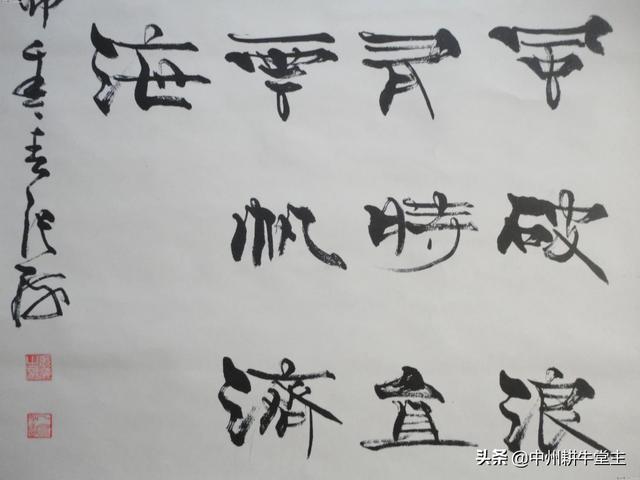 風破浪
有時直
雲帆濟
海
头条 @中州耕牛堂主